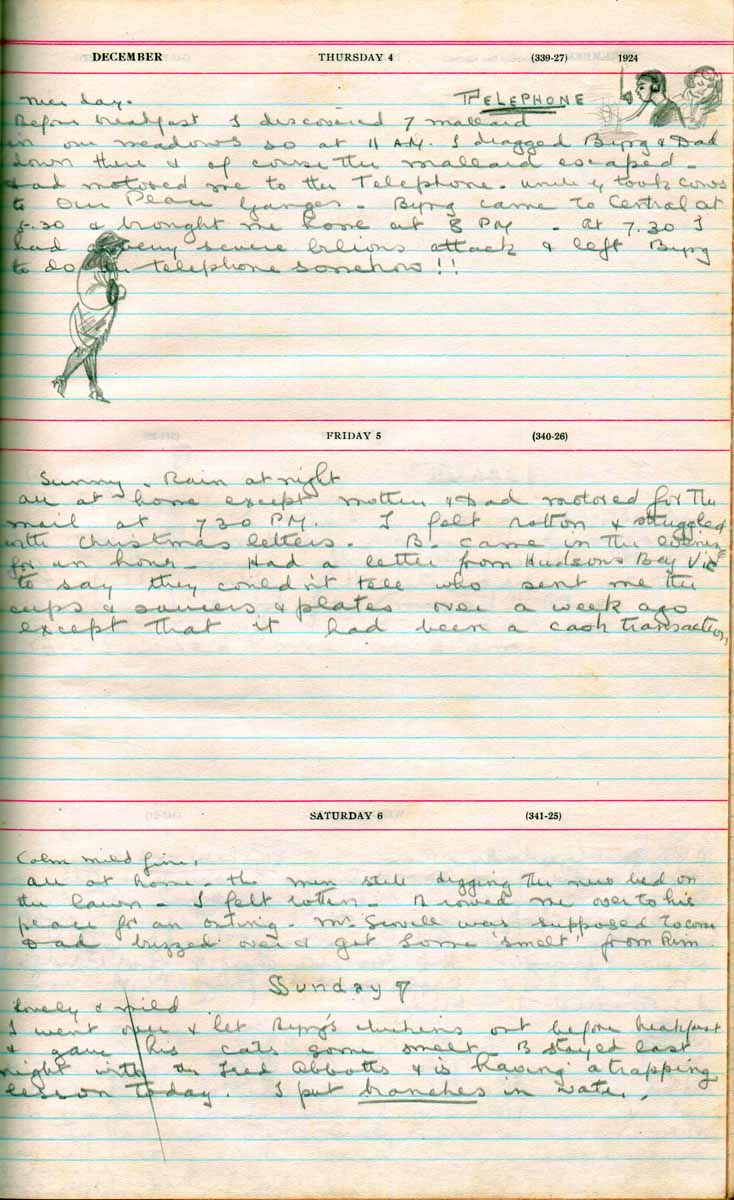 DECEMBER THURSDAY 4 (339-27) 1924
TELEPHONE
nice day.
Before breakfast I discovered 7 mallard
in our meadows so at 11 AM. I dragged Byng & Dad
down there & of course the mallard escaped -
Dad motored me to the Telephone. took cows
to Our Place Ganges. Byng came to Central at
5.30 & brought me home at 8 PM - At 7.30 I
had a very severe bilious attack & left Byng
to do the telephone somehow !!
FRIDAY 5 (340-26)
Sunny. Rain at night
all at home except mother & Dad motored for the
mail at 7 30 PM. I felt rotten & struggled
with Christmas letters. B. came in the evening
for an hour - Had a letter from Hudsons Bay Vic
to say they couldn't tell who sent me the
cups & saucers & plates over a week ago
except that it had been a cash transaction,
SATURDAY 6 (341-25)
Calm mild fine,
all at home - the men still digging the new bed on
the lawn - I felt rotten - B rowed me over to his
place for an outing - was supposed to come
Dad buzzed over & got some 'smelt' from
Sunday 7
Lovely & mild
I went over & let Byng's chickens out before breakfast
& gave his cats some smelt B stayed last
night with the Fred Abbotts & is having a trapping
lesson today. I put branches in water.